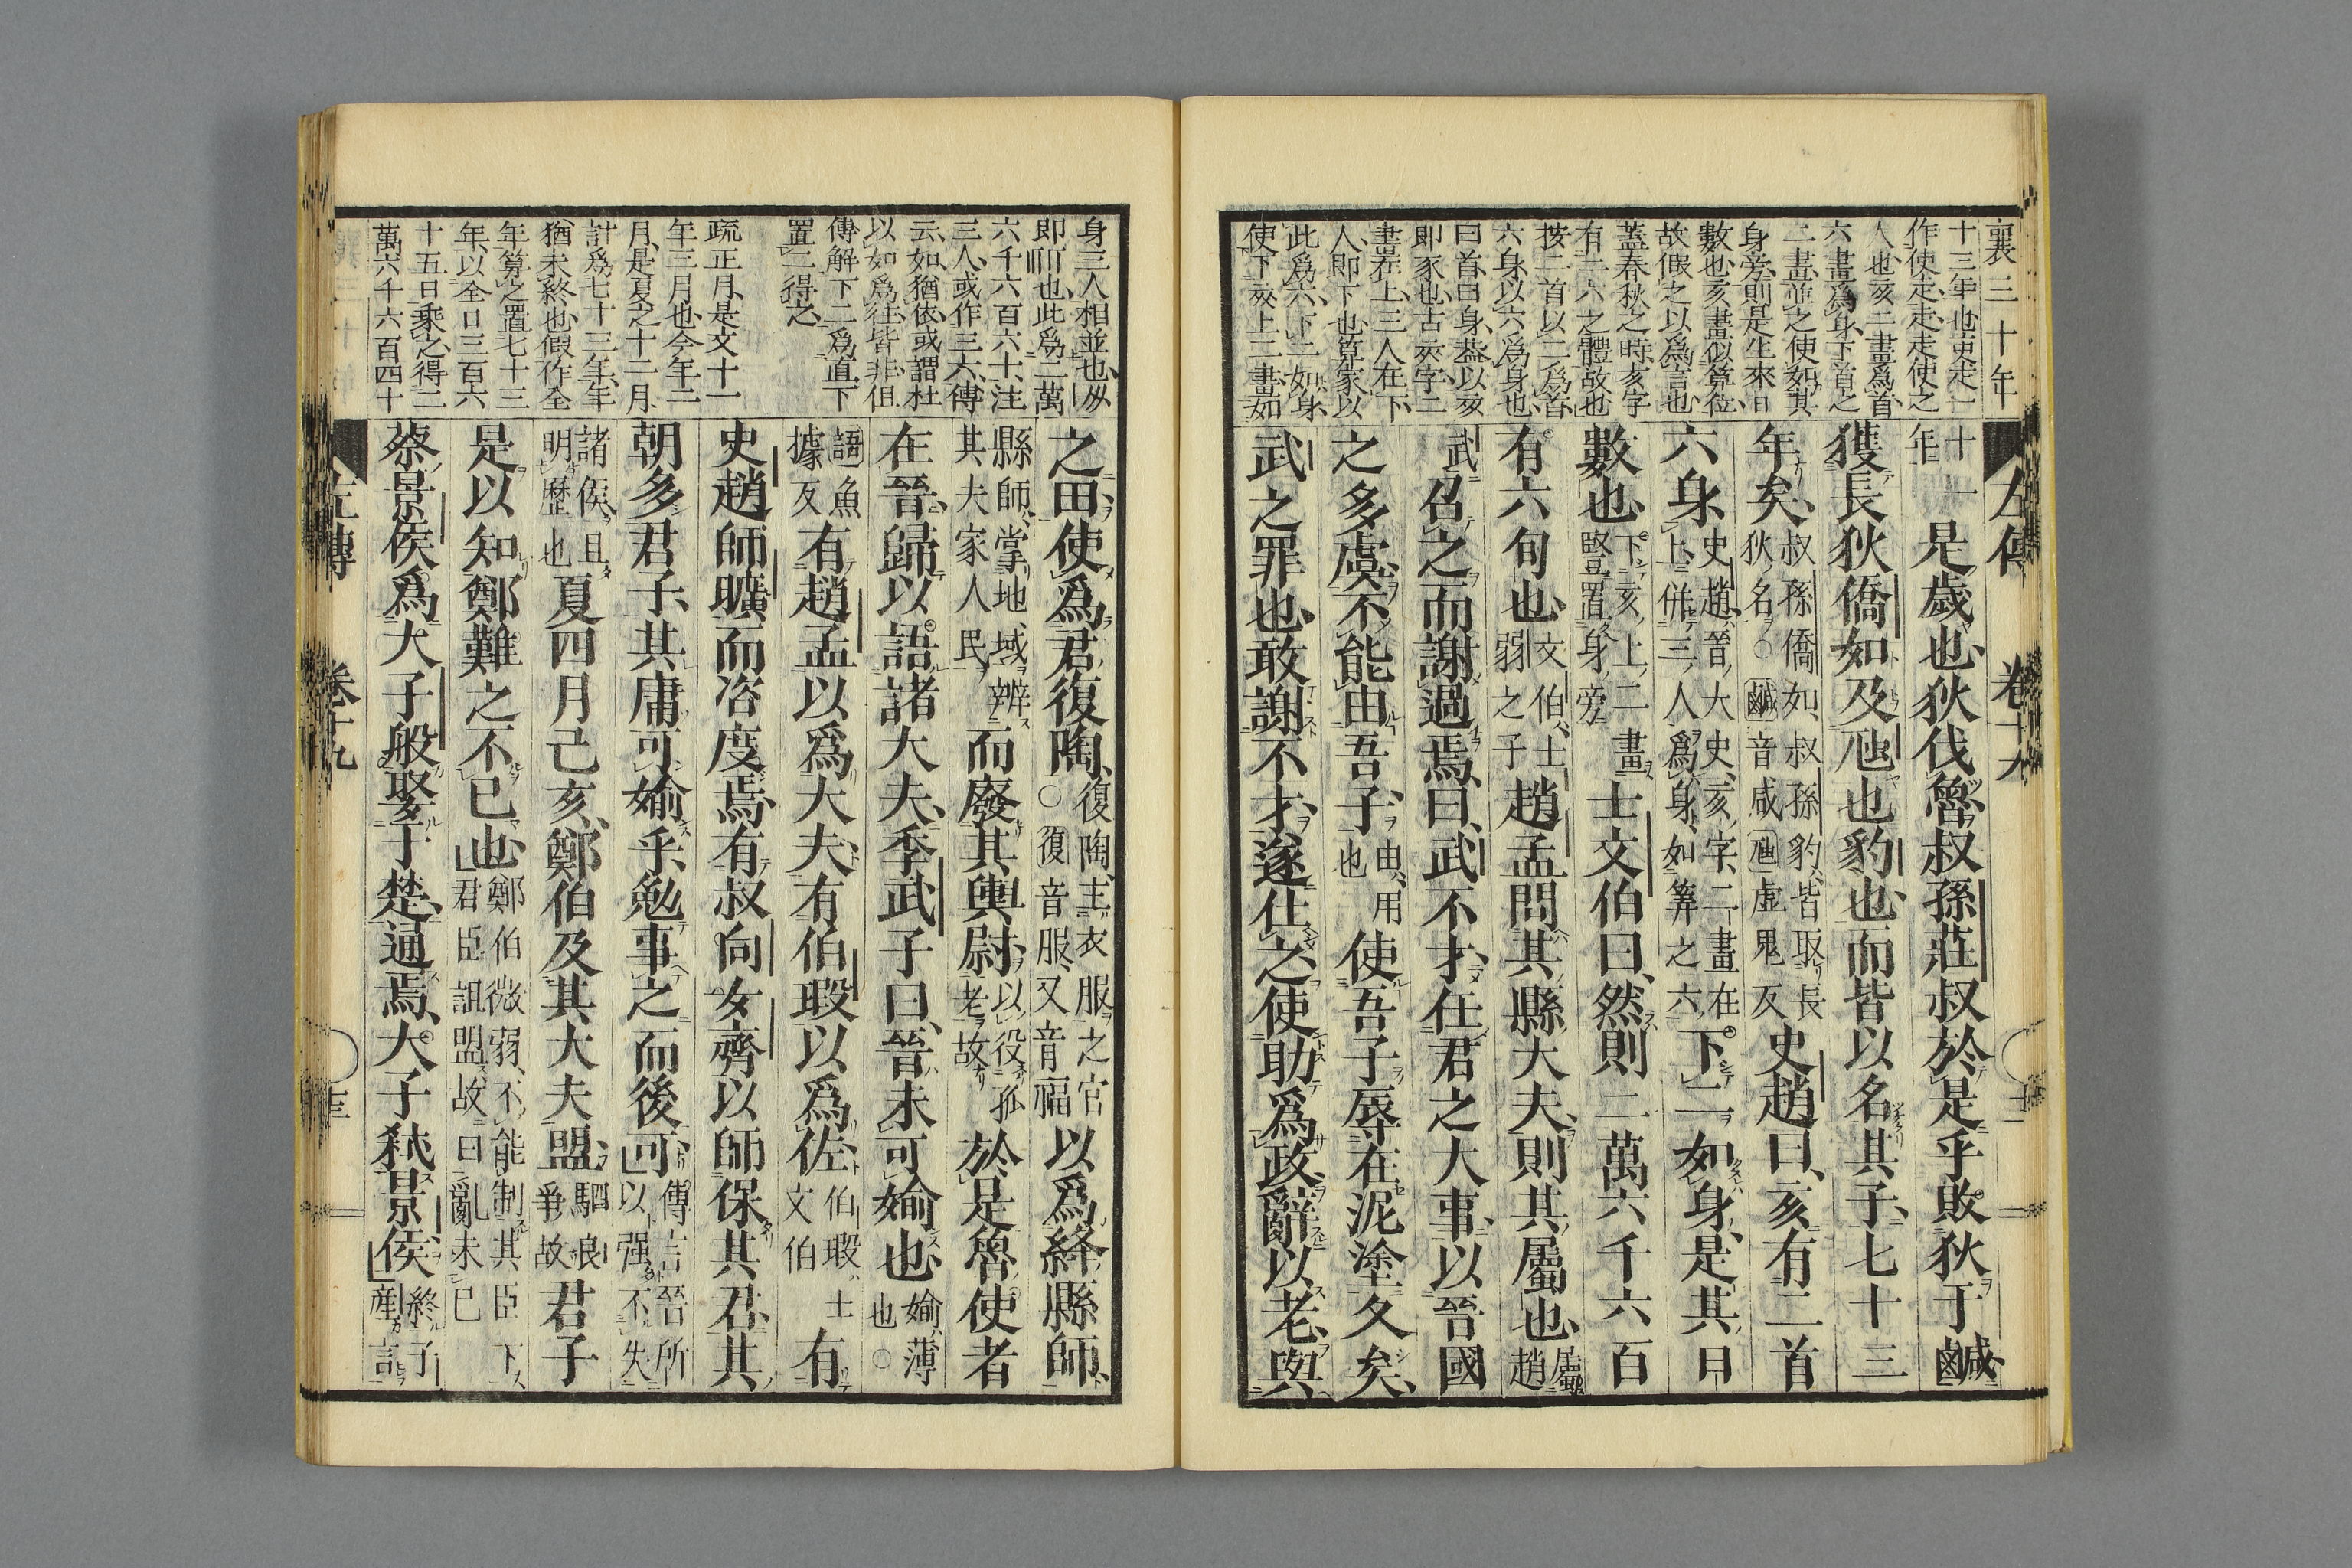 襄三十年
十三年也史走一
作使走走走使之
人也亥二畫爲首
六畫爲身下首之
二畫並之使如其
身旁則是生來日
數也亥畫似算位
故假之以爲言也
蓋春秋之時亥字
有二六之體故也
按二首以二爲首
六身以六爲身也
曰首曰身蓋以亥
即豕也古亥字二
畫在上三人在下
人即下也算家以
此爲六下二如身
使下亥上二畫如
左傳 卷十九
十一年是歲也狄伐魯叔孫莊叔於是乎敗狄于鹹
獲長狄僑如及虺也豹也而皆以名其子七十三
年矣叔孫僑如叔孫豹皆取長狄名○鹹音咸虺虛鬼反史趙曰亥有二首
六身史趙晉大史亥字二畫在上併三人爲身如筭之六下二如身是其日
數也下亥上二畫豎置身旁士文伯曰然則二萬六千六百
有六旬也文伯士弱之子趙孟問其縣大夫則其屬也屬趙
武召之而謝過焉曰武不才任君之大事以晉國
之多虞不能由吾子由用也使吾子辱在泥塗久矣
武之罪也敢謝不才遂仕之使助爲政辭以老與
身三人相並也㐺
即也此爲二萬
六千六百六十注
三人或作三六傳
云如猶依或謂杜
以如爲往皆非但
傳解下二爲直下
置二得之
疏正月是文十一
年三月也今年二
月是夏之十二月
計爲七十三年年
猶未終也假作全
年算之置七十三
年以全日三百六
十五日乘之得二
萬六千六百四十
之田使爲君復陶復陶主衣服之官○復音服又音福以爲絳縣師
縣師掌地域辨其夫家人民而廢其輿尉以役孤老故於是魯使者
在晉歸以語諸大夫季武子曰晉未可媮也媮薄也○
語魚據反有趙孟以爲大夫有伯瑕以爲佐伯瑕士文伯有
史趙師曠而咨度焉有叔向女齊以師保其君其
朝多君子其庸可媮乎勉事之而後可傳言晉所以强不失
諸侯且明歷也夏四月己亥鄭伯及其大夫盟駟良爭故君子
是以知鄭難之不已也鄭伯微弱不能制其臣下君臣詛盟故曰亂未已
蔡景侯爲大子般娶于楚通焉大子弒景侯終子產言
左傳 卷十九